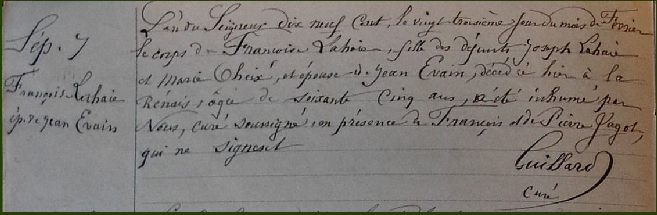 Sep. 7
François Lahaie
ép. de Jean Evain
L'an du Seigneur dix neuf cent, le vingt troisième jour du mois de Février
le corps de Françoise Lahaie, fille des défunts Joseph Lahaie
et Marie Choix, et épouse de Jean Evain, décédée hier à la
Renais âgée de soixante cinq ans, a été inhumé par
Nous, curé soussigné en présence de François et de Pierre Jugot,
qui ne signent
Guillard
curé